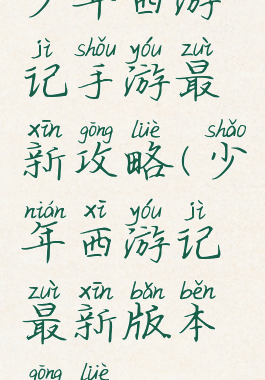 少年西游
jì shǒu yóu zuì
记手游最
xīn gōng lüè shǎo
新攻略(少
nián xī yóu jì
年西游记
zuì xīn bǎn běn
最新版本
gōng lüè